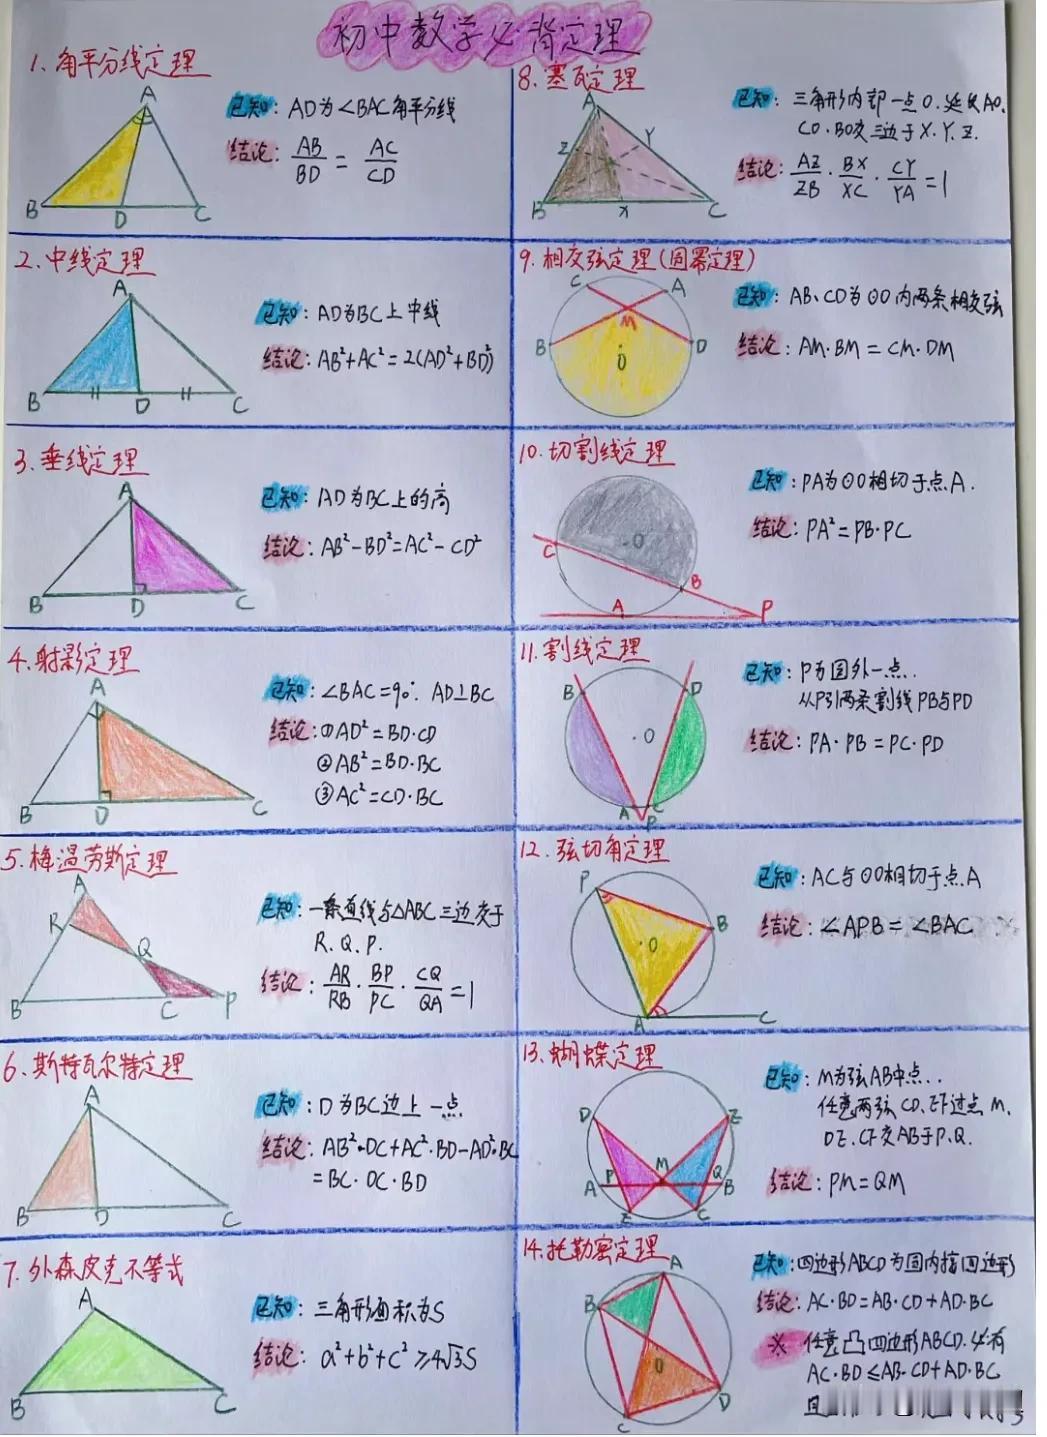 初中数学必背定理
1、角平分线定理
A
B
D
C
已知：AD为∠BAC角平分线
结论：AB/BD = AC/CD
2、中线定理
A
B
D
C
已知：AD为BC上中线
结论：AB²+AC²=2(AD²+BD²)
3、垂线定理
A
B
D
C
已知：AD为BC上的高
结论：AB²-BD²=AC²-CD²
4、射影定理
A
B
D
C
已知：∠BAC=90°. AD⊥BC
结论：①AD²=BD·CD
②AB²=BD·BC
③AC²=CD·BC
5、梅温劳斯定理
A
R
Q
B
C
P
已知：一条直线与△ABC三边交于
R、Q、P.
结论：AR/RB · BP/PC · CQ/QA =1
6、斯特瓦尔特定理
A
B
D
C
已知：D为BC边上一点
结论：AB²·DC+AC²·BD-AD²·BC
=BC·DC·BD
7、外森皮克不等式
A
B
C
已知：三角形面积为S
结论：a²+b²+c²≥4√3S
8、塞瓦定理
A
Z
Y
B
X
C
已知：三角形内部一点O.延长AO、
CO、BO交三边于X、Y、Z.
结论：AZ/ZB · BX/XC · CY/YA =1
9、相交弦定理(圆幂定理)
C
A
M
B
D
O
已知：AB、CD为⊙O内两条相交弦
结论：AM·BM=CM·DM
10、切割线定理
O
C
B
A
P
已知：PA为⊙O相切于点A.
结论：PA²=PB·PC
11、割线定理
B
D
O
A
C
P
已知：P为圆外一点.
从P引两条割线PB与PD
结论：PA·PB=PC·PD
12、弦切角定理
P
B
O
A
C
已知：AC与⊙O相切于点A
结论：∠APB=∠BAC
13、蝴蝶定理
D
E
A
P
M
Q
B
C
已知：M为弦AB中点..
任意两弦CD、EF过点M.
DE、CF交AB于P、Q.
结论：PM=QM
14、托勒密定理
A
B
O
C
D
已知：四边形ABCD为圆内接四边形
结论：AC·BD=AB·CD+AD·BC
※ 任意凸四边形ABCD.必有
AC·BD≤AB·CD+AD·BC
且